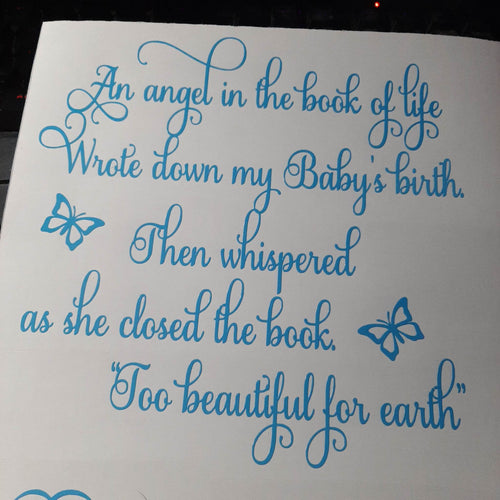 An angel in the book of life
Wrote down my Baby's birth.
Then whispered
as she closed the book.
"Too beautiful for earth"